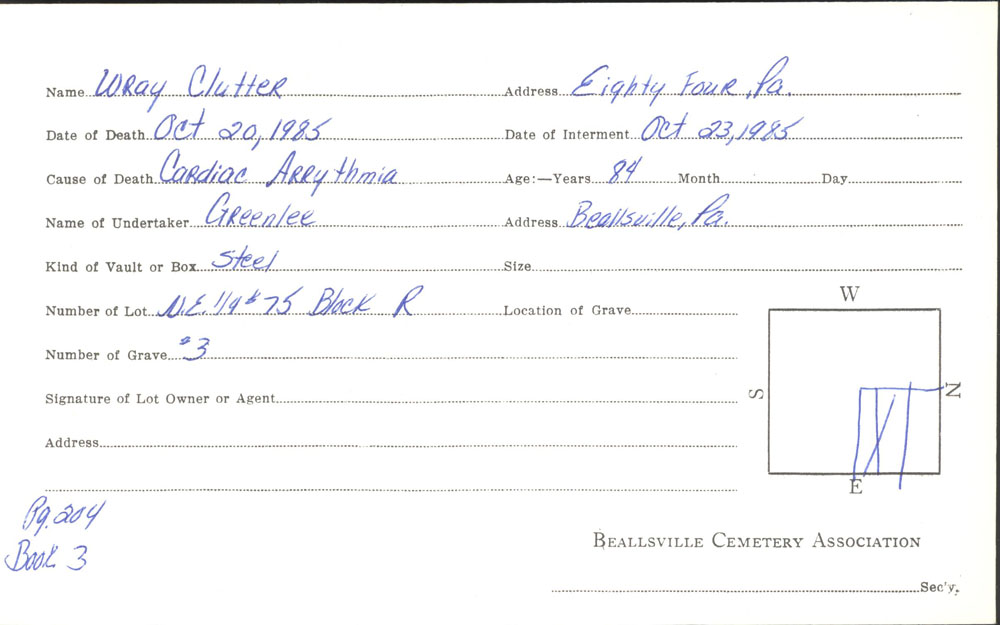 Name WRay ClutteR Address Eighty FouR, Pa.
Date of Death Oct 20, 1985 Date of Interment Oct 23, 1985
Cause of Death CaRdiac ARRythmia Age:—Years 84 Month Day
Name of Undertaker GReenlee Address Beallsville, Pa.
Kind of Vault or Box Steel Size
Number of Lot N.E. 1/4 #75 Block R Location of Grave
Number of Grave #3
Signature of Lot Owner or Agent
Address
W
S
N
E
Pg. 204
Book 3
BEALLSVILLE CEMETERY ASSOCIATION
Sec'y.